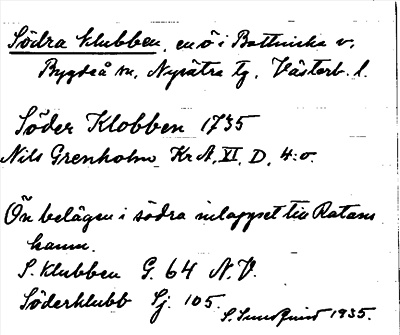 Södra klubben, en ö i Bottniska v,
Bygdeå sn, Nysätra tg, Västerb. l.
Söder Klobben 1735
Nils Grenholm Kr A, XI, D, 4:o.
Ön belägen i södra inloppet till Ratans
hamn.
S. Klubben G. 64 N.V.
Söderklubb Sj. 105.
S. Sundqvist 1935.